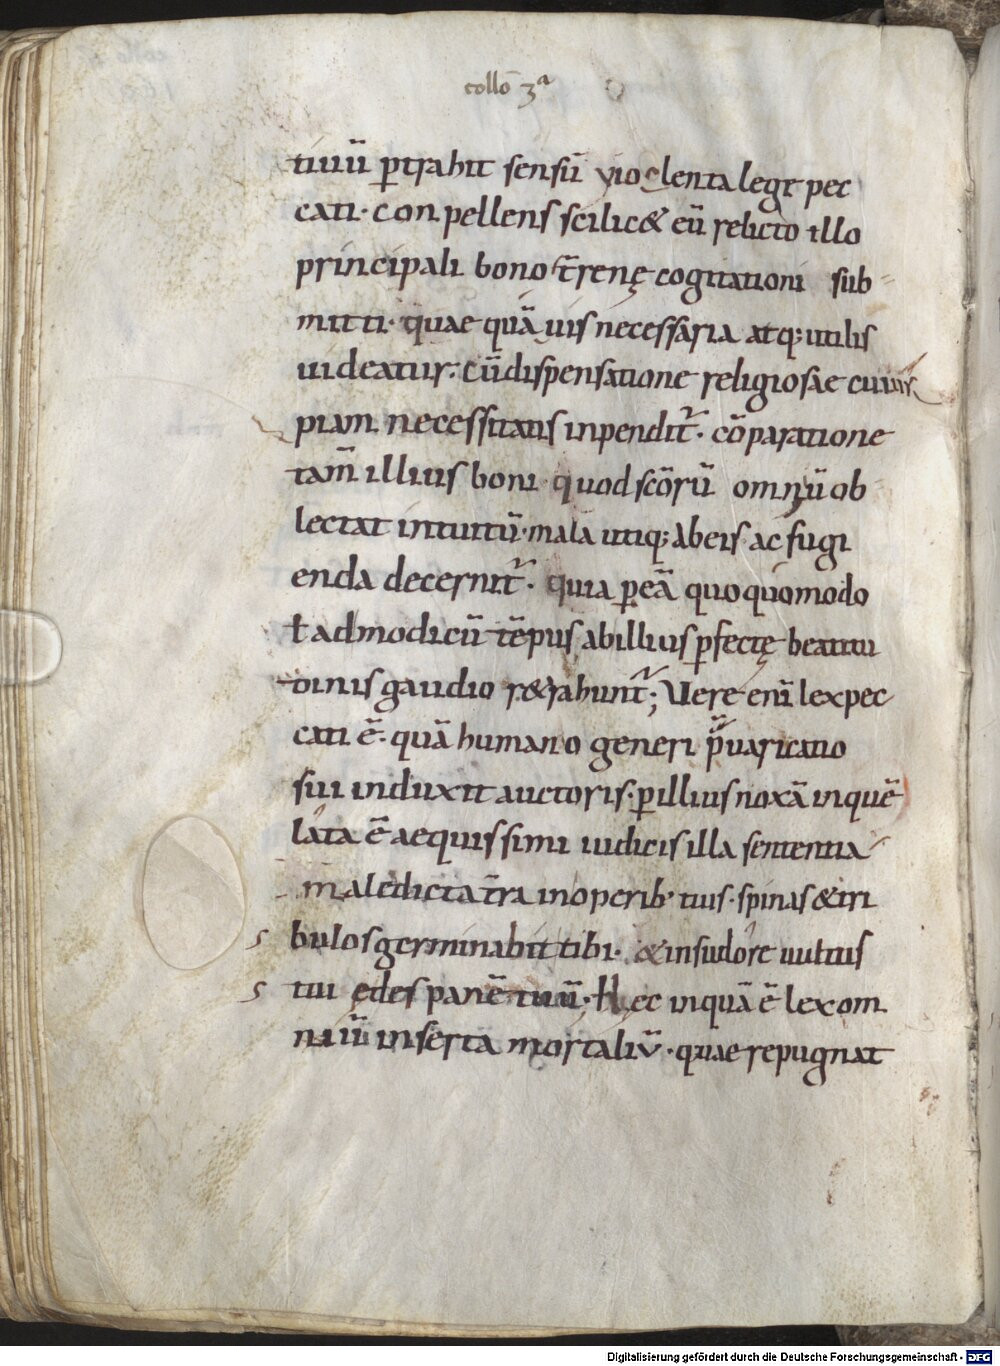 collo᷑ 3ᵃ
tiuū ꝑtrahit sensū violenta lege pec
cati· conpellens scilic& eū relicto illo
principali bono t̄renę cogitationi sub
mitti· quae quāuis necessaria atq; utilis
uideatur· cū dispensatione religiosae cuius
piam necessitatis inpendit᷑· cōparatione
tam̄ illius boni quod scōrū omniū ob
lectat intuitū· mala utiq; ab eis ac fugi
enda decernit᷑· quia ꝑ eā quoquomodo
ł ad modicū tēpus ab illius ꝑfectę beatitu
dinis gaudio r&rahunt᷑; Uere enī lex pec
cati ē· quā humano generi p̄uaricatio
sui induxit auctoris· ꝑ illius noxā in quē
lata ē aequissimi iudicis illa sententia
maledicta t̄ra in operib' tuis· spinas & tri
bulos germinabit tibi· & in sudore uultus
tui edes panē tuū· Hec inquā ē lex om
niū inserta mortaliū· quae repugnat
Digitalisierung gefördert durch die Deutsche Forschungsgemeinschaft - DFG